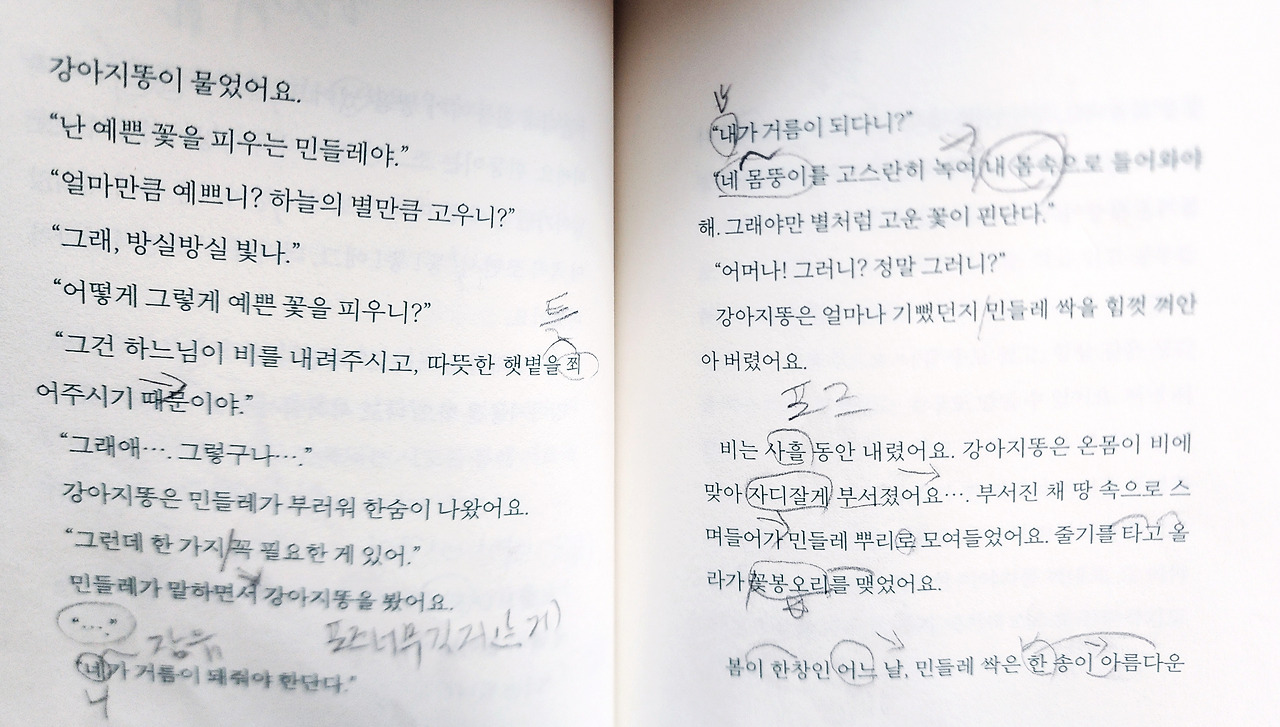 강아지똥이 물었어요.
“난 예쁜 꽃을 피우는 민들레야.”
“얼마만큼 예쁘니? 하늘의 별만큼 고우니?”
“그래, 방실방실 빛나.”
“어떻게 그렇게 예쁜 꽃을 피우니?”
“그건 하느님이 비를 내려주시고, 따뜻한 햇볕을 쬐
어주시기 때문이야.”
“그래애…. 그렇구나….”
강아지똥은 민들레가 부러워 한숨이 나왔어요.
“그런데 한 가지 꼭 필요한 게 있어.”
민들레가 말하면서 강아지똥을 봤어요.
“…”
“네가 거름이 돼줘야 한단다.”
니
“내가 거름이 되다니?”
“네 몸뚱이를 고스란히 녹여 내 몸속으로 들어와야
해. 그래야만 별처럼 고운 꽃이 핀단다.”
“어머나! 그러니? 정말 그러니?”
강아지똥은 얼마나 기뻤던지 민들레 싹을 힘껏 껴안
아 버렸어요.
포즈
비는 사흘 동안 내렸어요. 강아지똥은 온몸이 비에
맞아 자디잘게 부서졌어요…. 부서진 채 땅 속으로 스
며들어가 민들레 뿌리로 모여들었어요. 줄기를 타고 올
라가 꽃봉오리를 맺었어요.
봄이 한창인 어느 날, 민들레 싹은 한 송이 아름다운